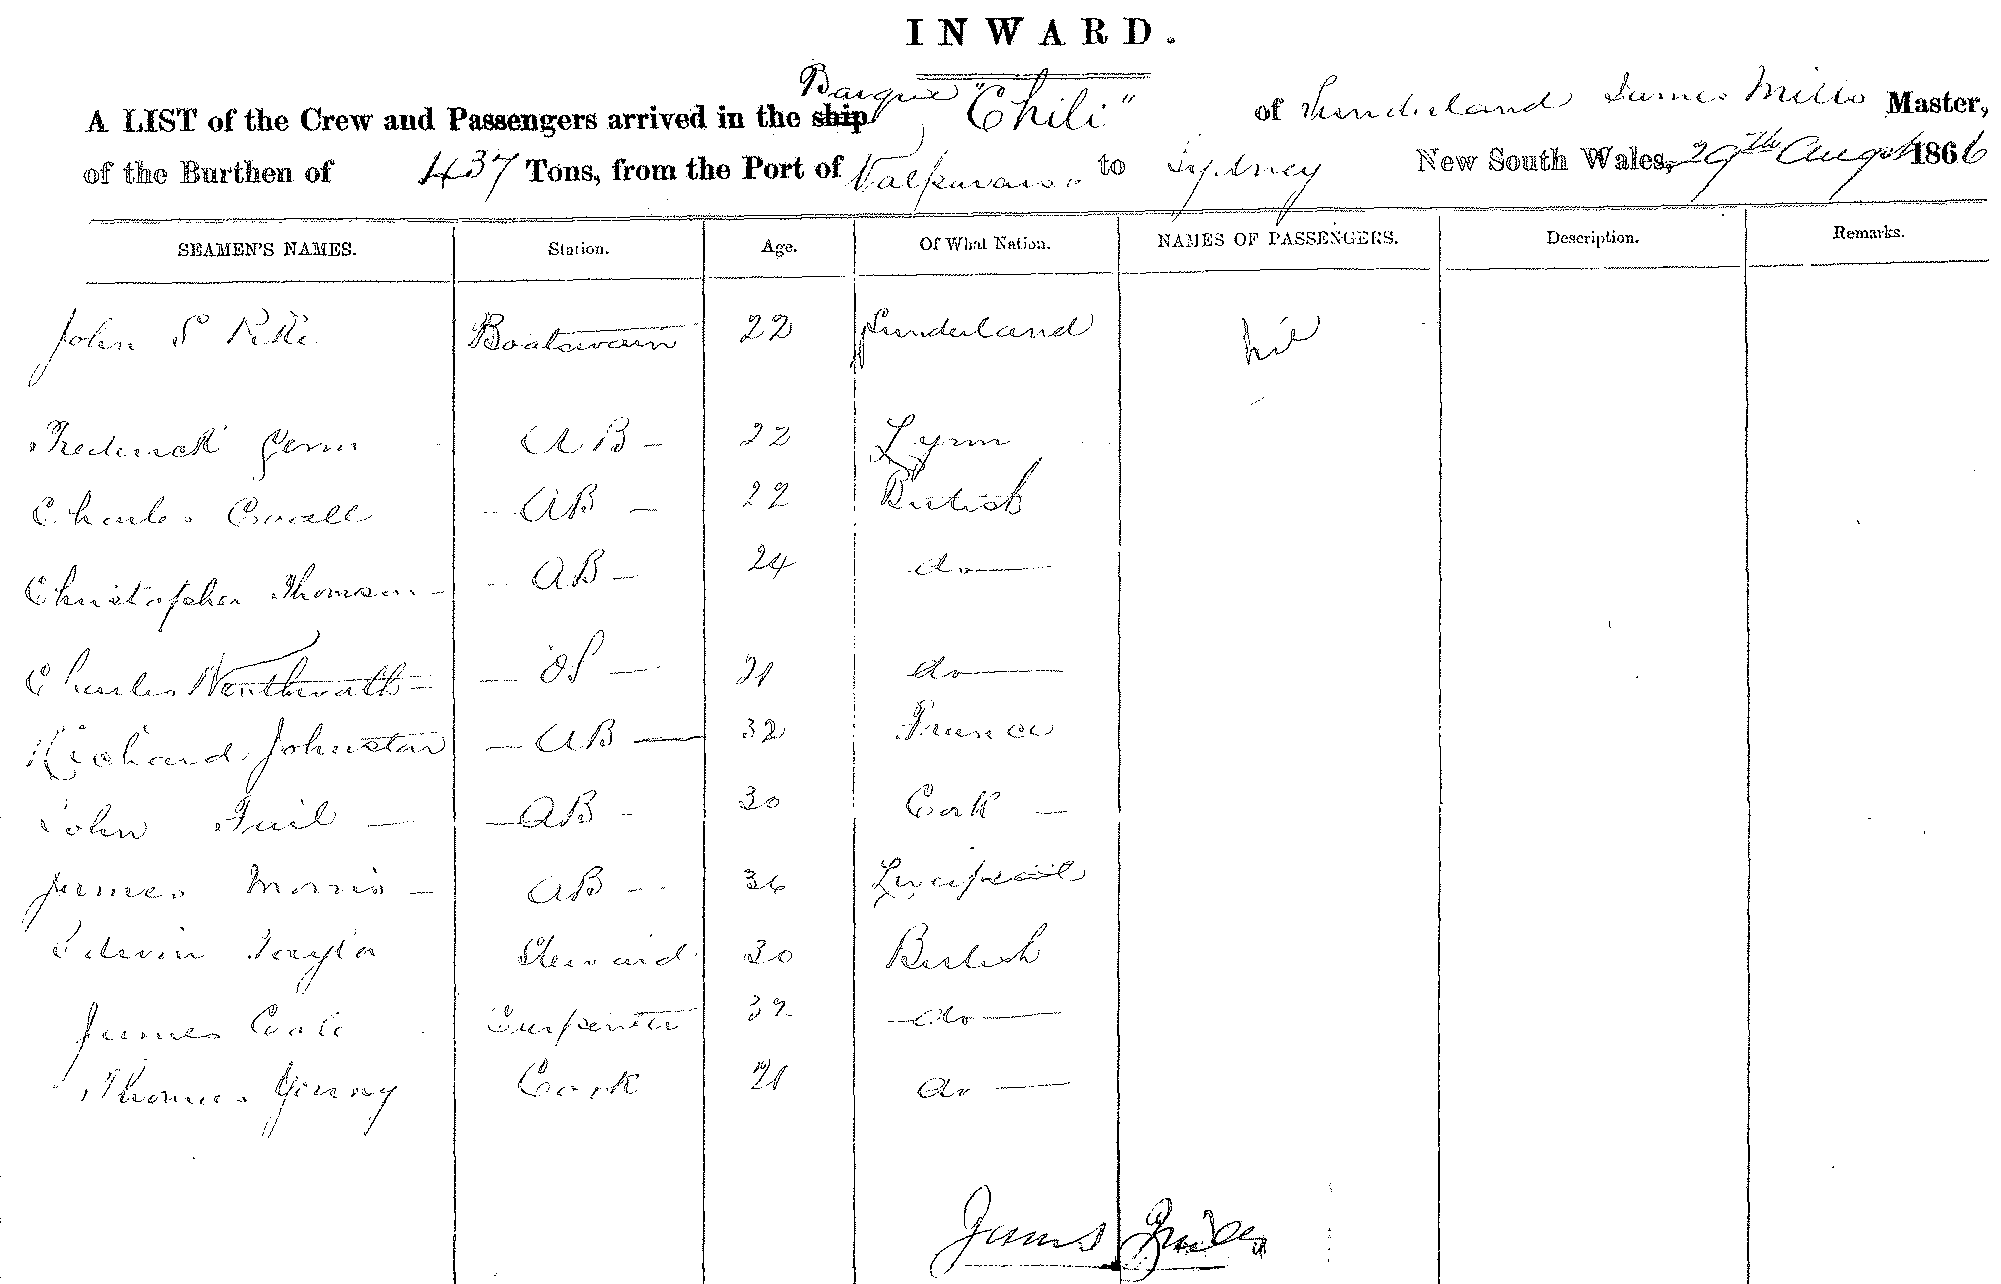 INWARD.
A LIST of the Crew and Passengers arrived in the ship Barque "Chili" of Sunderland James Mills Master,
of the Burthen of 437 Tons, from the Port of Valparaiso to Sydney New South Wales, 29th August 1866
SEAMEN'S NAMES. Station. Age. Of What Nation. NAMES OF PASSENGERS. Description. Remarks.
John S Boatswain 22 Sunderland nil
Frederick A B - 22 Lynn
Charles - AB - 22 British
Christopher Thomson - - AB - 24 do
Charles Wenthwath - - OS - 21 do
Richard Johnston - AB - 32 France
John - - AB - 30 Cork -
James Morris - AB - 36 Liverpool
Edwin Taylor Steward 30 British
James Carpenter 32 - do -
Thomas Cook 21 do -
James Mills